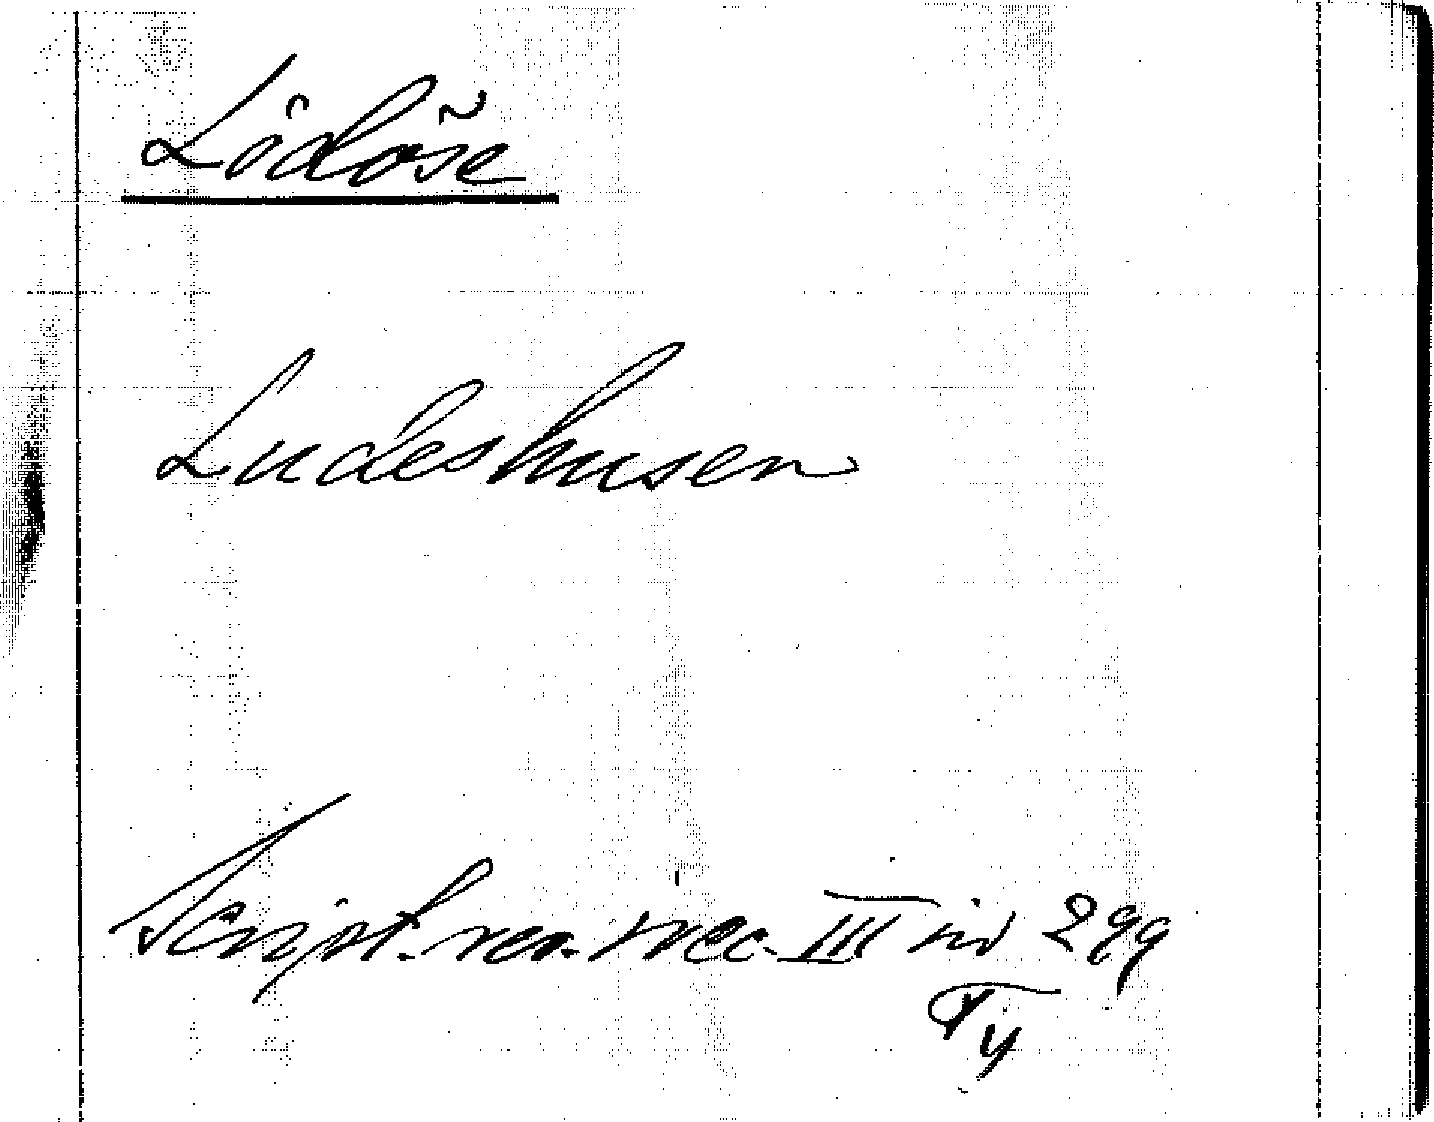 Lödöse
Ludeshusen
Script. rer. svec. III sid 299
Ty